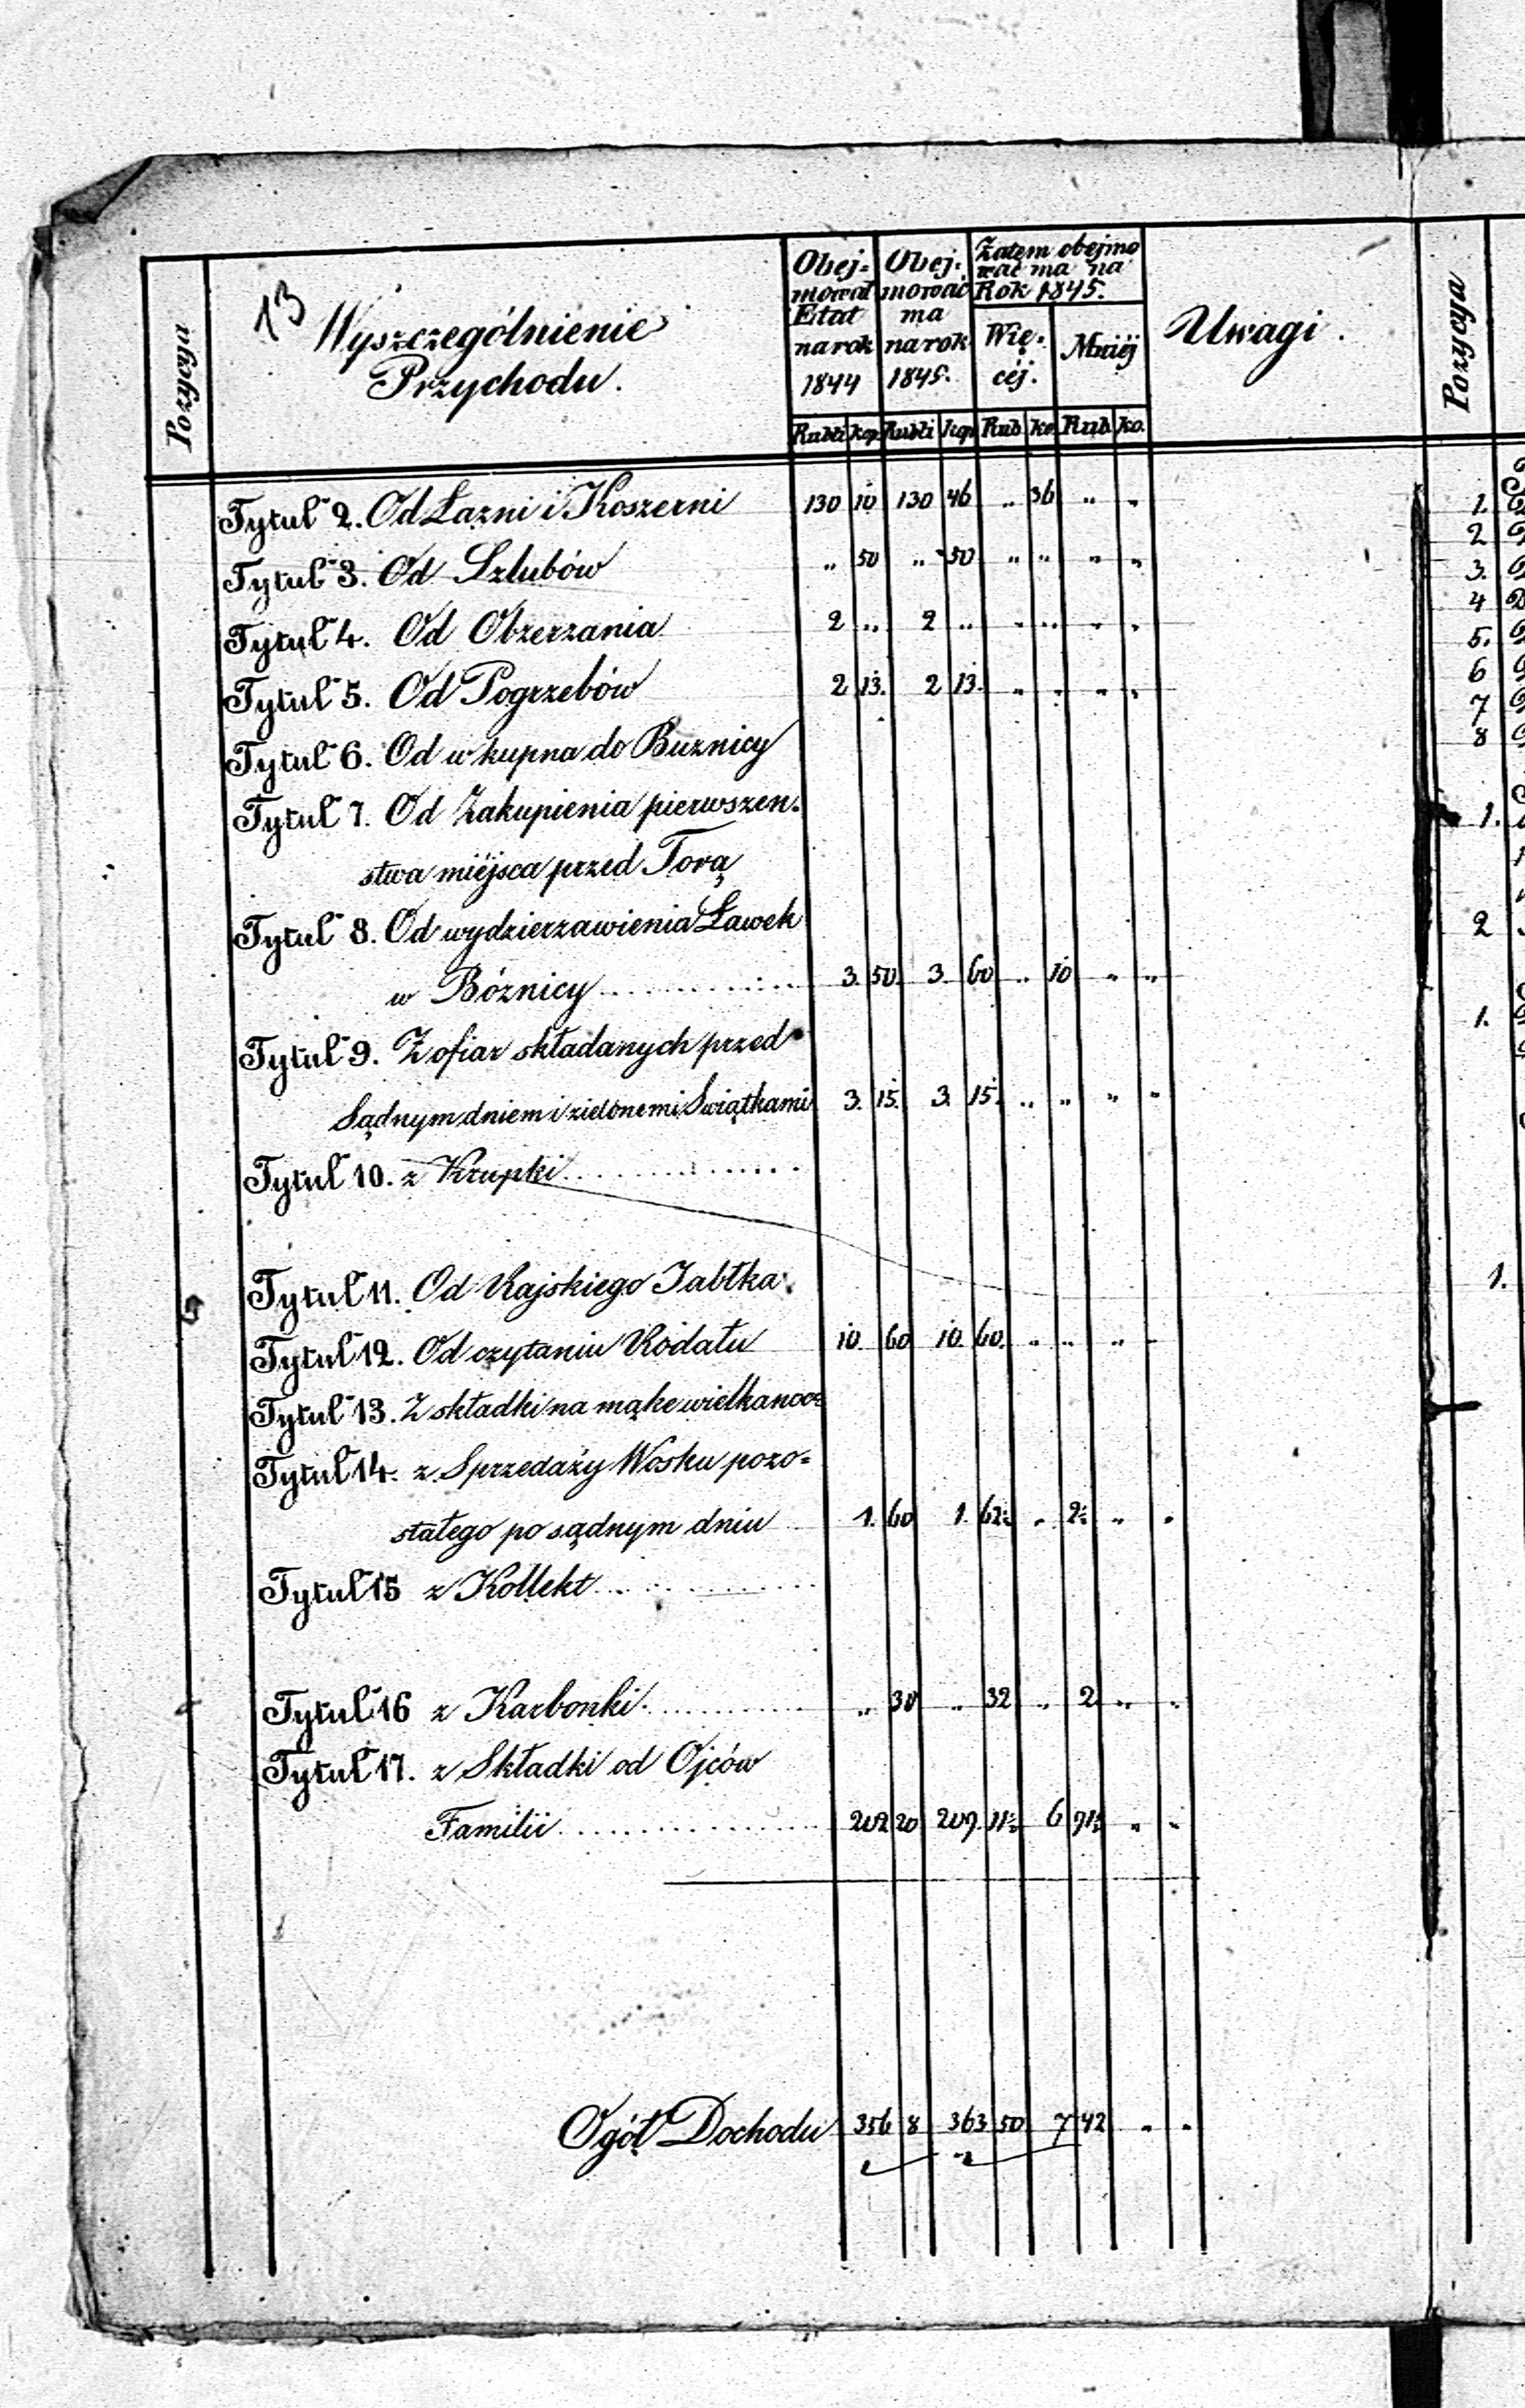 13
Pozycya
Wyszczególnienie
Przychodu.
Obej=
mował
Etat
na rok
1844
Obej=
mować
ma
na rok
1845.
Zatem obejmo
wać ma na
Rok 1845.
Wię=
céj.
Mniéj
Uwagi.
Rubli kop. Rubli kop Rub ko. Rub. ko.
Tytuł 2. Od Łazni i Koszerni 130 10 130 46 „ 36 „ „
Tytuł 3. Od Szlubów „ 50 „ 50 „ „ „ „
Tytuł 4. Od Obrzerzania 2 „ 2 „ „ „ „ „
Tytuł 5. Od Pogrzebów 2 13. 2 13. „ „ „ „
Tytuł 6. Od w kupna do Buznicy
Tytuł 7. Od Zakupienia pierwszen=
stwa miéjsca przed Torą
Tytuł 8. Od wydzierzawienia Ławek
w Bóżnicy 3. 50. 3. 60 „ 10 „ „
Tytuł 9. Z ofiar składanych przed
Sądnym dniem i zielonemi Swiątkami 3. 15. 3. 15. „ „ „ „
Tytuł 10. z Krupki
Tytuł 11. Od Rajskiego Jabłka.
Tytuł 12. Od czytaniu Rodału 10. 60 10. 60. „ „ „ „
Tytuł 13. Z składki na mąke wielkanoc=
Tytuł 14. z Sprzedaży Wosku pozo=
stałego po sądnym dniu 1. 60 1. 62½ „ 2½ „ „
Tytuł 15 z Kollekt
Tytuł 16 z Karbonki „ 30 „ 32 „ 2 „ „
Tytuł 17. z Składki od Ojców
Familii 202 20 209 11½ 6 91½ „ „
Ogół Dochodu 356 8 363 50 7 42 „ „
Pozycya
1.
2
3.
4
5.
6
7
8
1.
2
1.
1.